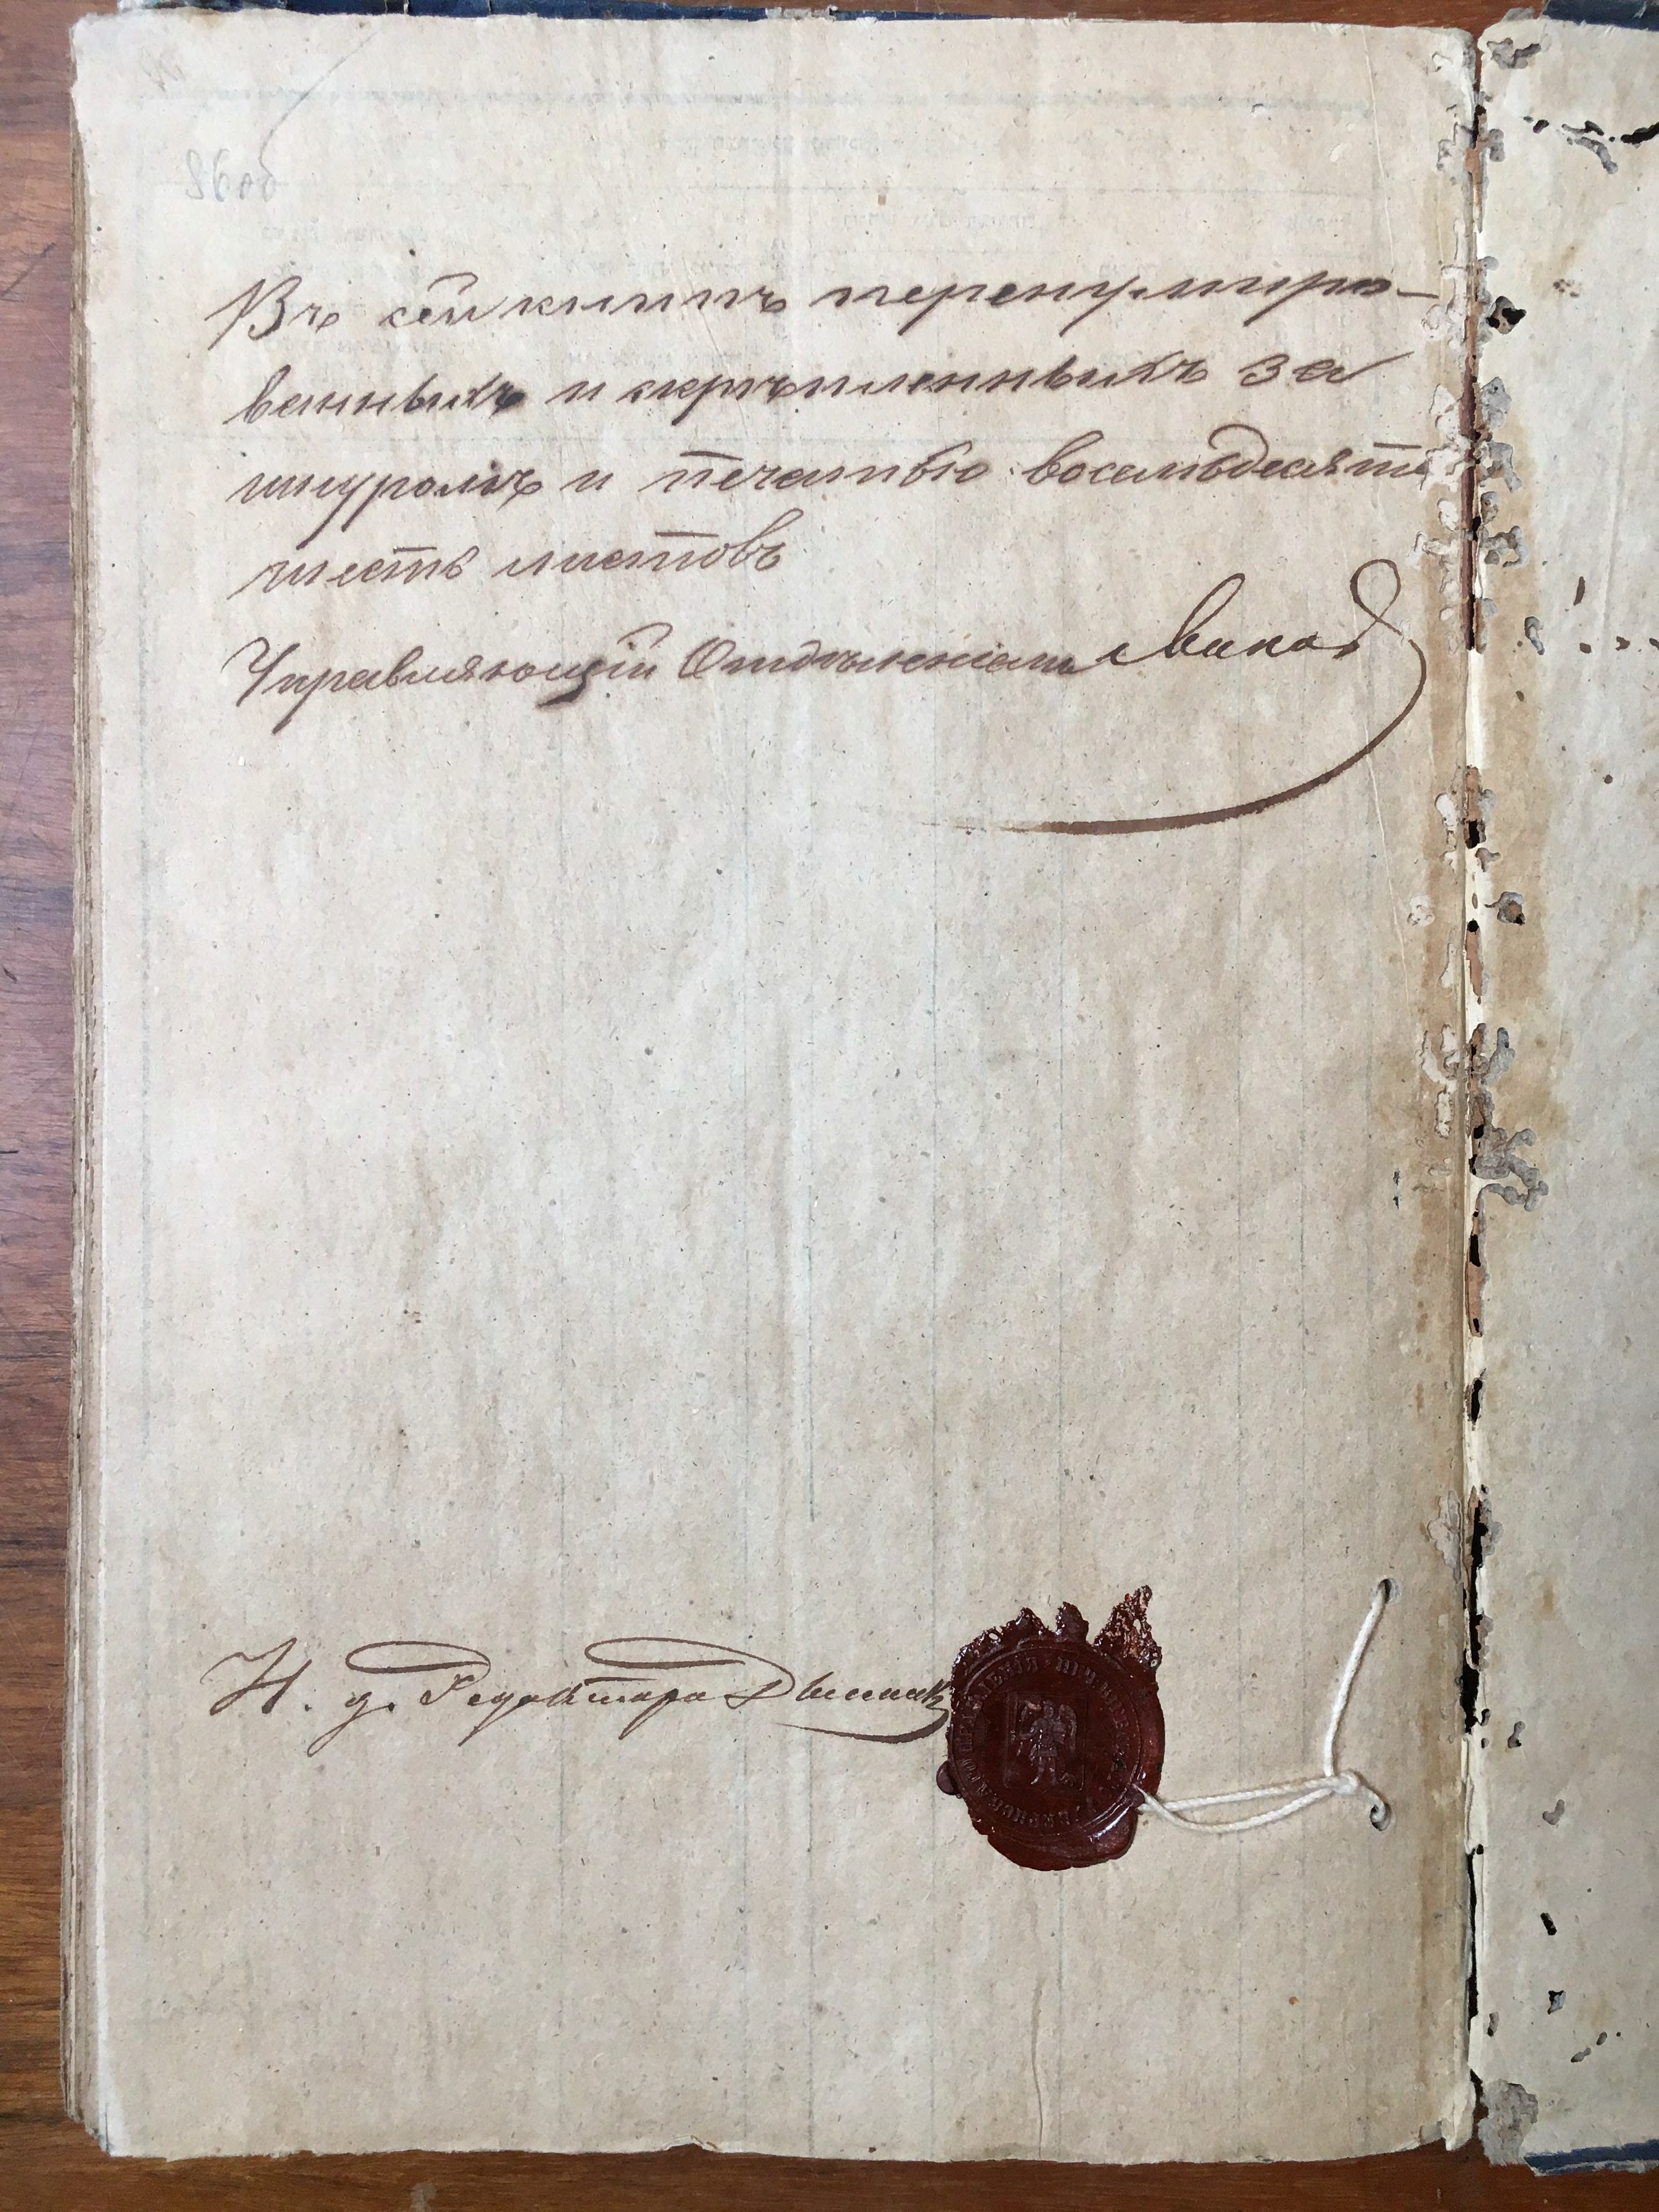 86 об
Въ сей книгѣ перенумиро-
ванныхъ и скрѣпленныхъ за
шнуромъ и печатью восемьдесятъ
шесть листовъ
Управляющій Отдѣленіемъ
И. д. Редактора